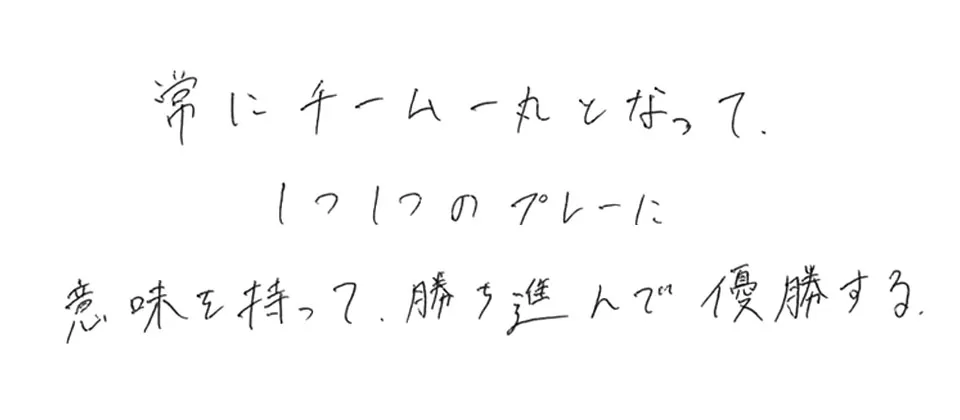 常にチーム一丸となって、
1つ1つのプレーに
意味を持って、勝ち進んで優勝する。